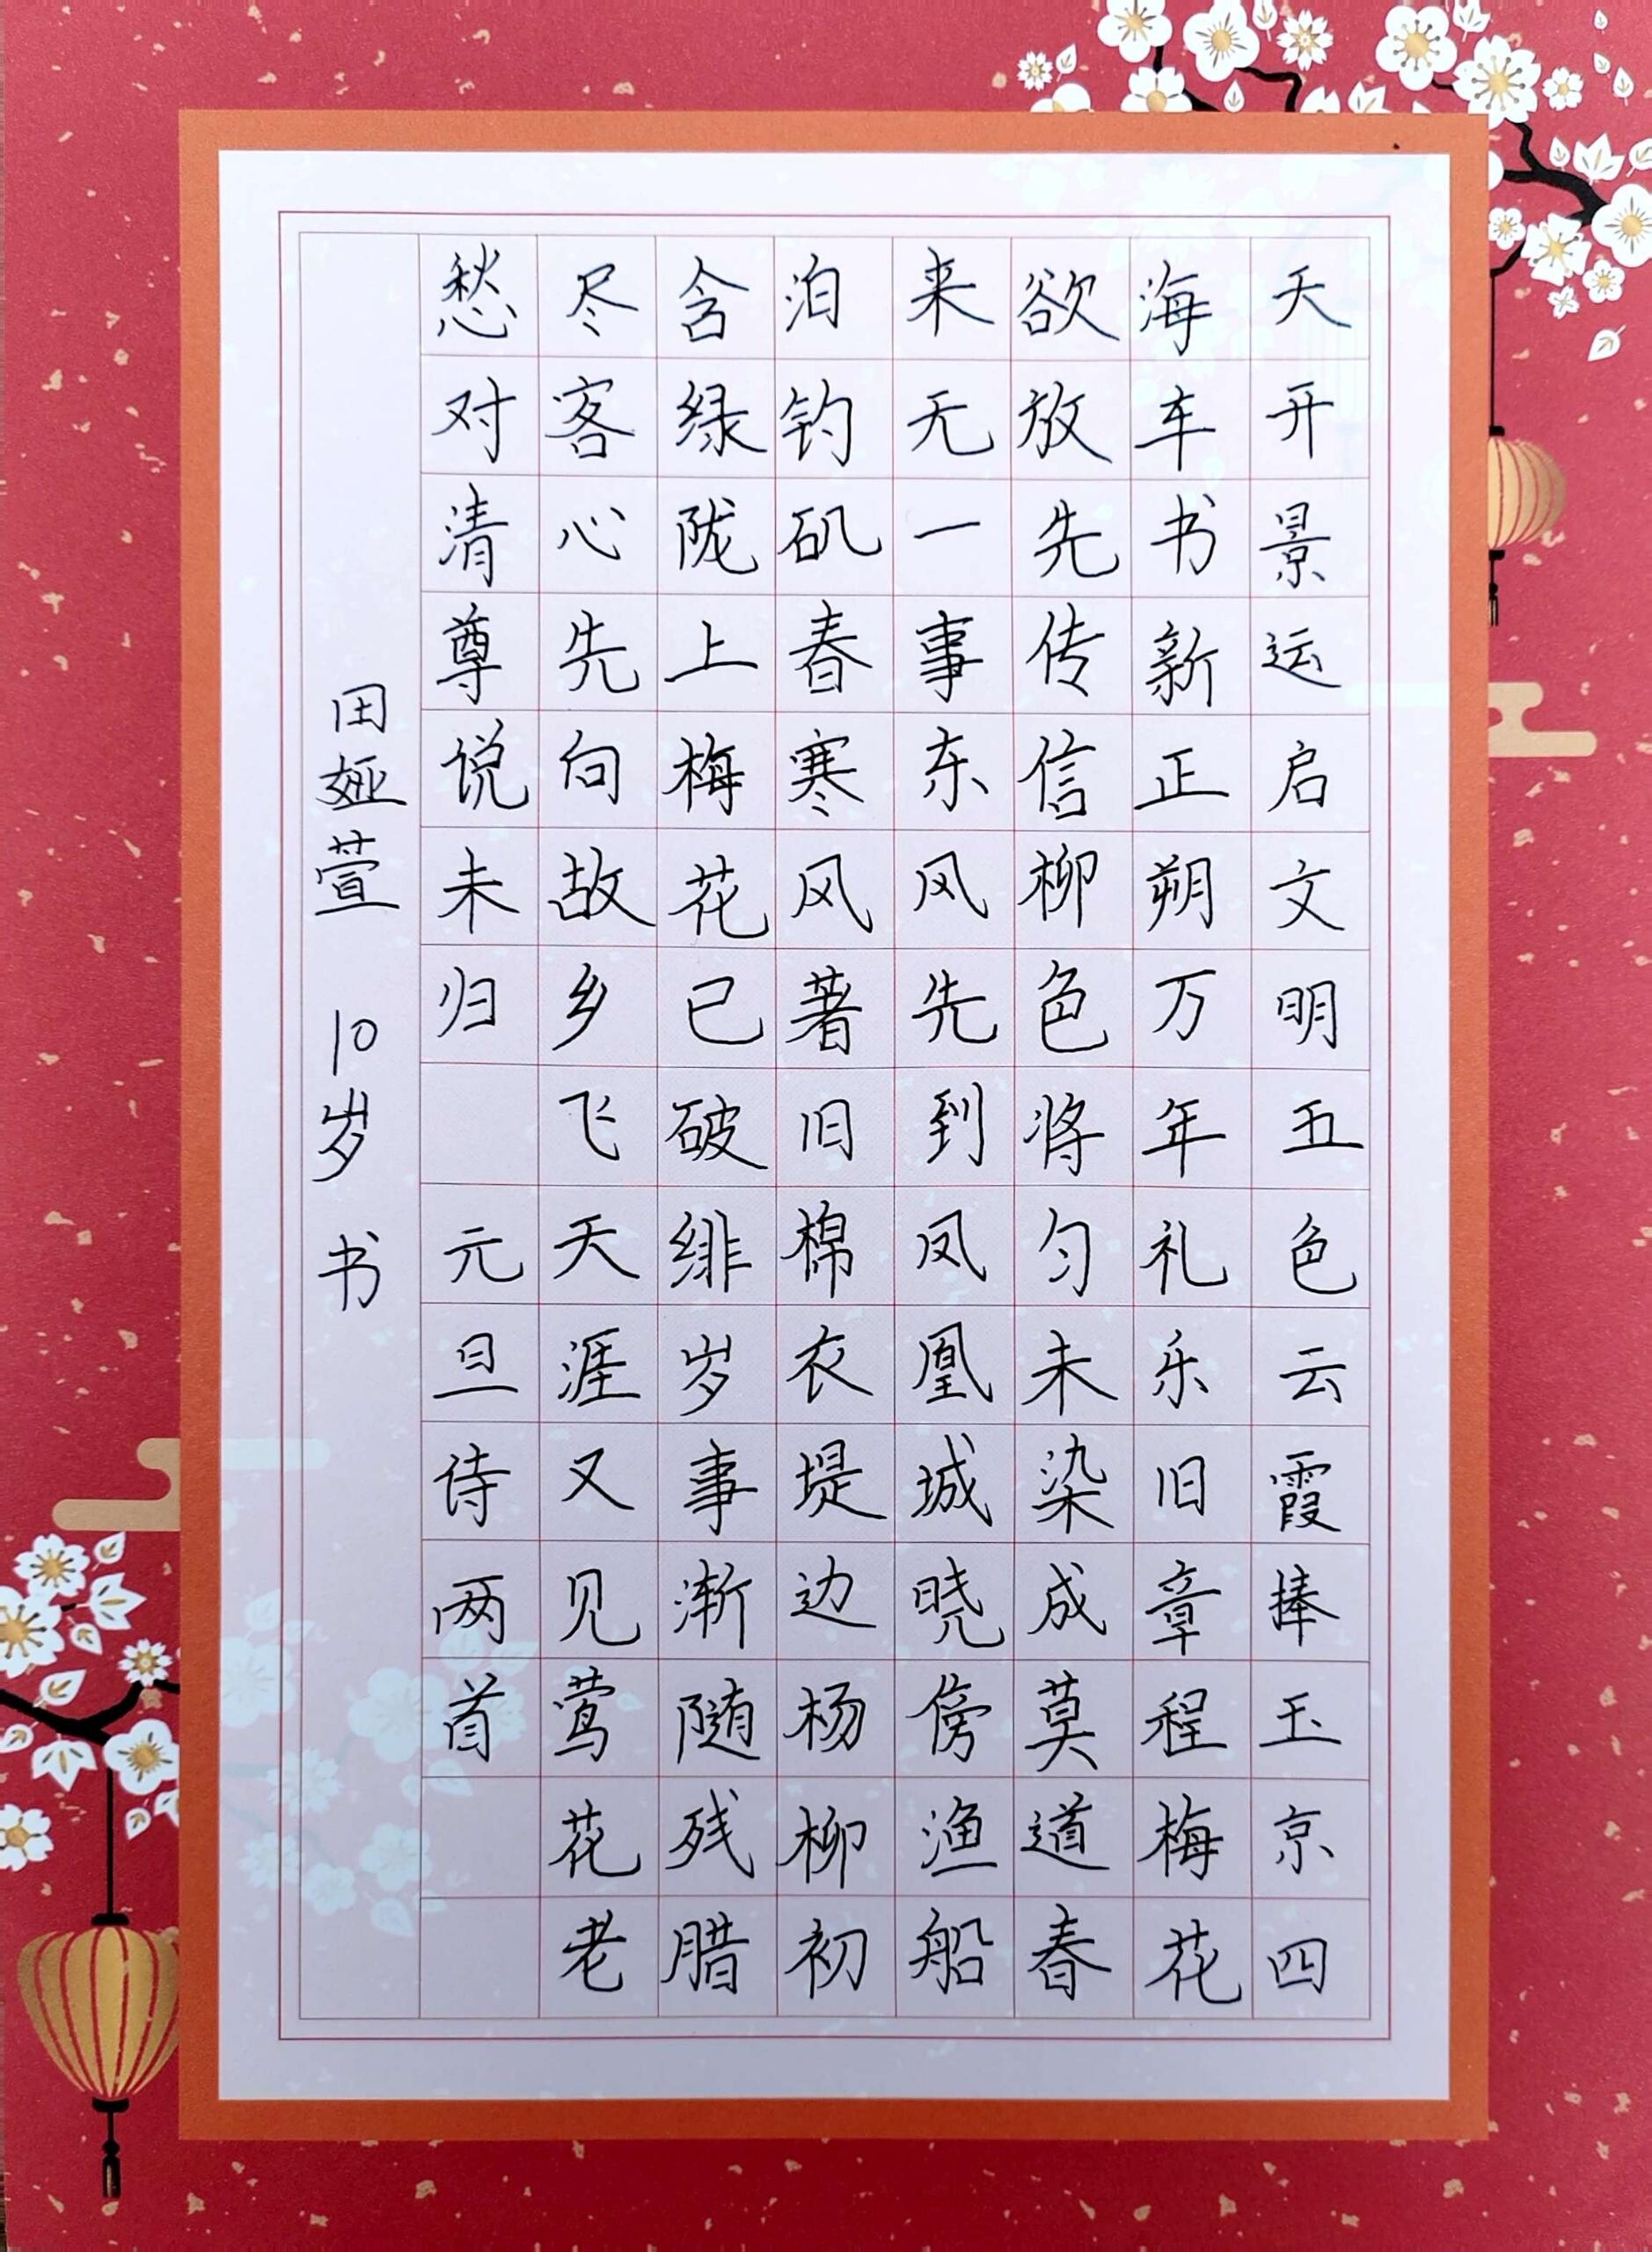 天开景运启文明五色云霞捧玉京四
海车书新正朔万年礼乐旧章程梅花
欲放先传信柳色将匀未染成莫道春
来无一事东风先到凤凰城晓傍渔船
泊钓矶春寒风著旧棉衣堤边杨柳初
含绿陇上梅花已破绯岁事渐随残腊
尽客心先向故乡飞天涯又见莺花老
愁对清尊说未归 元旦诗两首
田娅萱 10岁 书